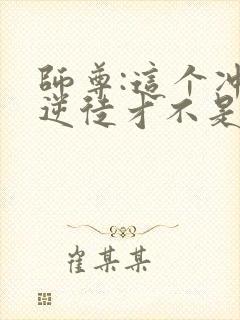 師尊:這个冲
逆徒才不是
崔某某